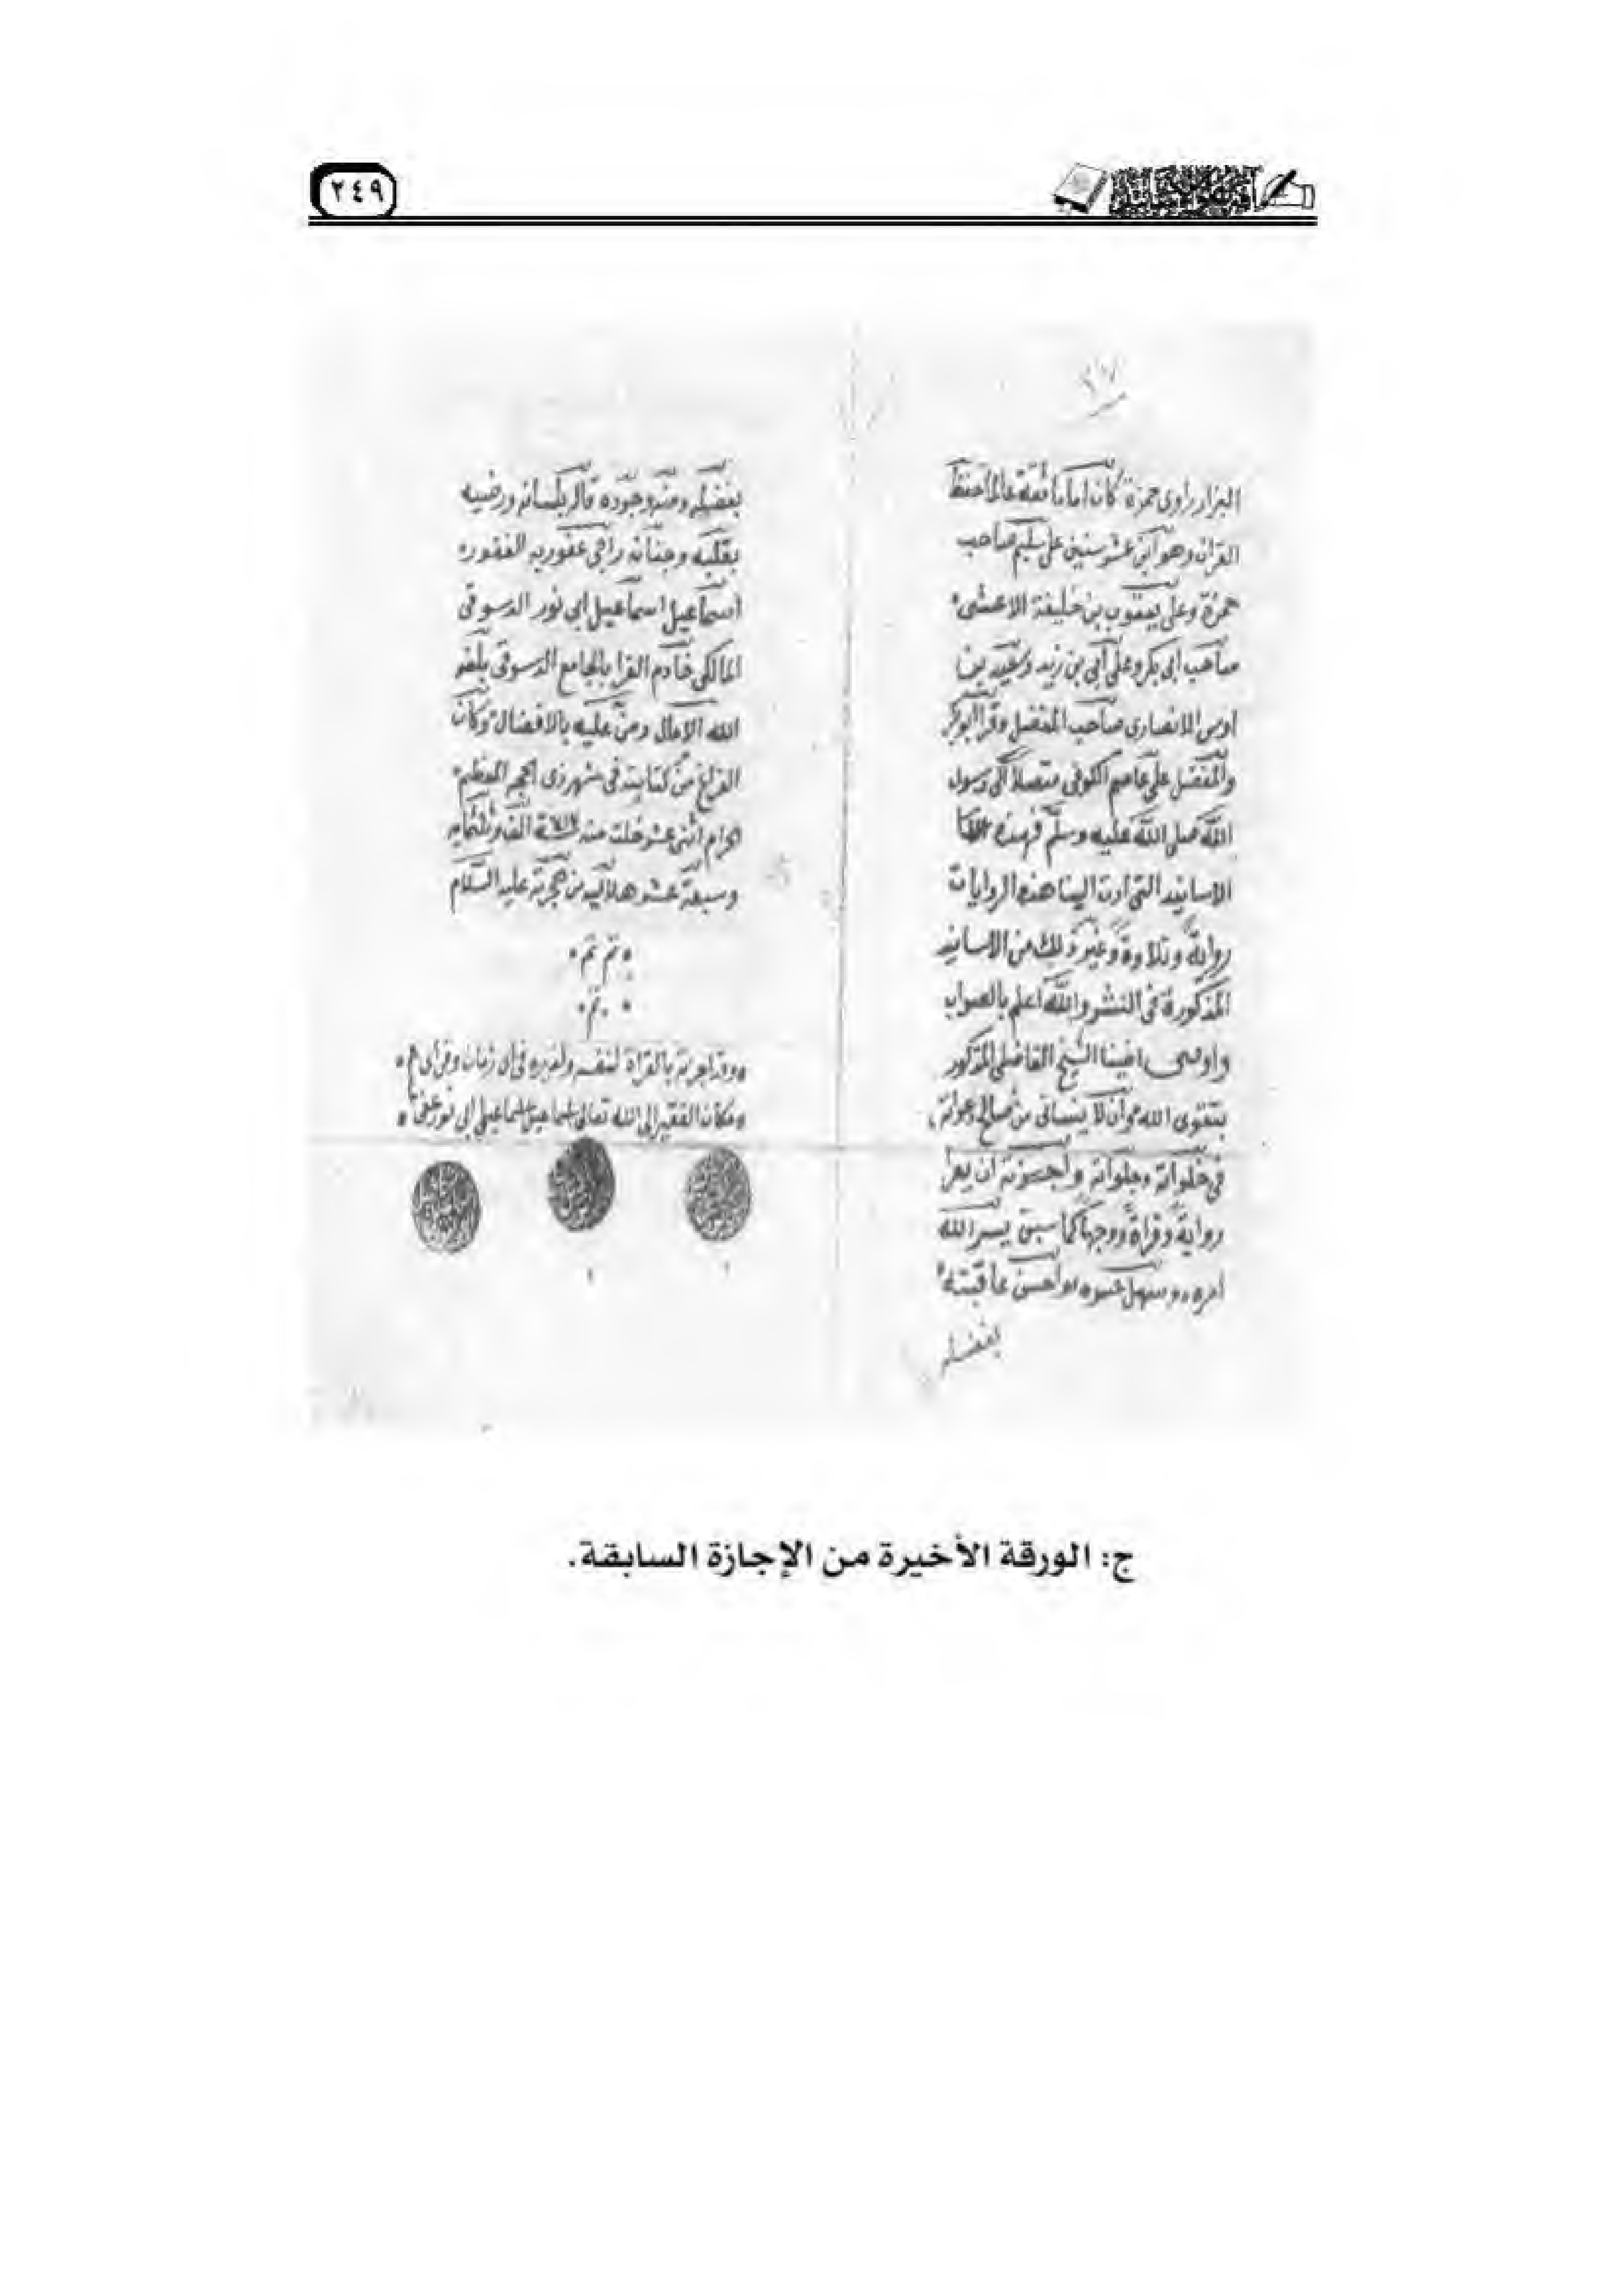 ٢٤٩
٢٧
البزار راوى حمزة كان اماما ثقة عالما حفظ
القران وهو ابن عشر سنين على سليم صاحب
حمزة وعلى يعقوب بن خليفة الاعشى
صاحب ابى بكر وعلى ابى بن زيد وسعيد بن
اوس الانصارى صاحب المفضل وقرا ابوبكر
والمفضل على عاصم الكوفى متصلا الى رسول
الله صلى الله عليه وسلم فهذه
الاسانيد التى ادت الينا هذه الروايات
رواية وتلاوة وغير ذلك من الاسانيد
المذكورة فى النشر والله اعلم بالصواب
واوصى اخينا الشيخ الفاضل المذكور
بتقوى الله وان لا ينسانى من صالح دعواته
فى خلواته وجلواته واجزته ان يقرا
رواية وقراة ووجها كما سبق يسر الله
امره وسهل عسره واحسن عاقبته
بفضله
بفضله ومنه وجوده قاله بلسانه ورضيه
بقلبه وجنانه راجى عفو ربه الغفور
اسماعيل اسماعيل ابى نور الدسوقى
المالكى خادم القرا بالجامع الدسوقى بلغه
الله الامال ومن عليه بالافضال وكان
الفراغ من كتابته فى شهر ذى الحجه المعظم
الحرام اثنى عشر خلت منه سنة الف وثلثمايه
وسبعة عشر هلاليه من هجرته عليه السلام
تم تم
تم
وقد اجزته بالقراة لنفسه ولغيره فى اى زمان وفى اى
مكان الفقير الى الله تعالى اسماعيل اسماعيل ابى نور عفى
ج: الورقة الأخيرة من الإجازة السابقة.